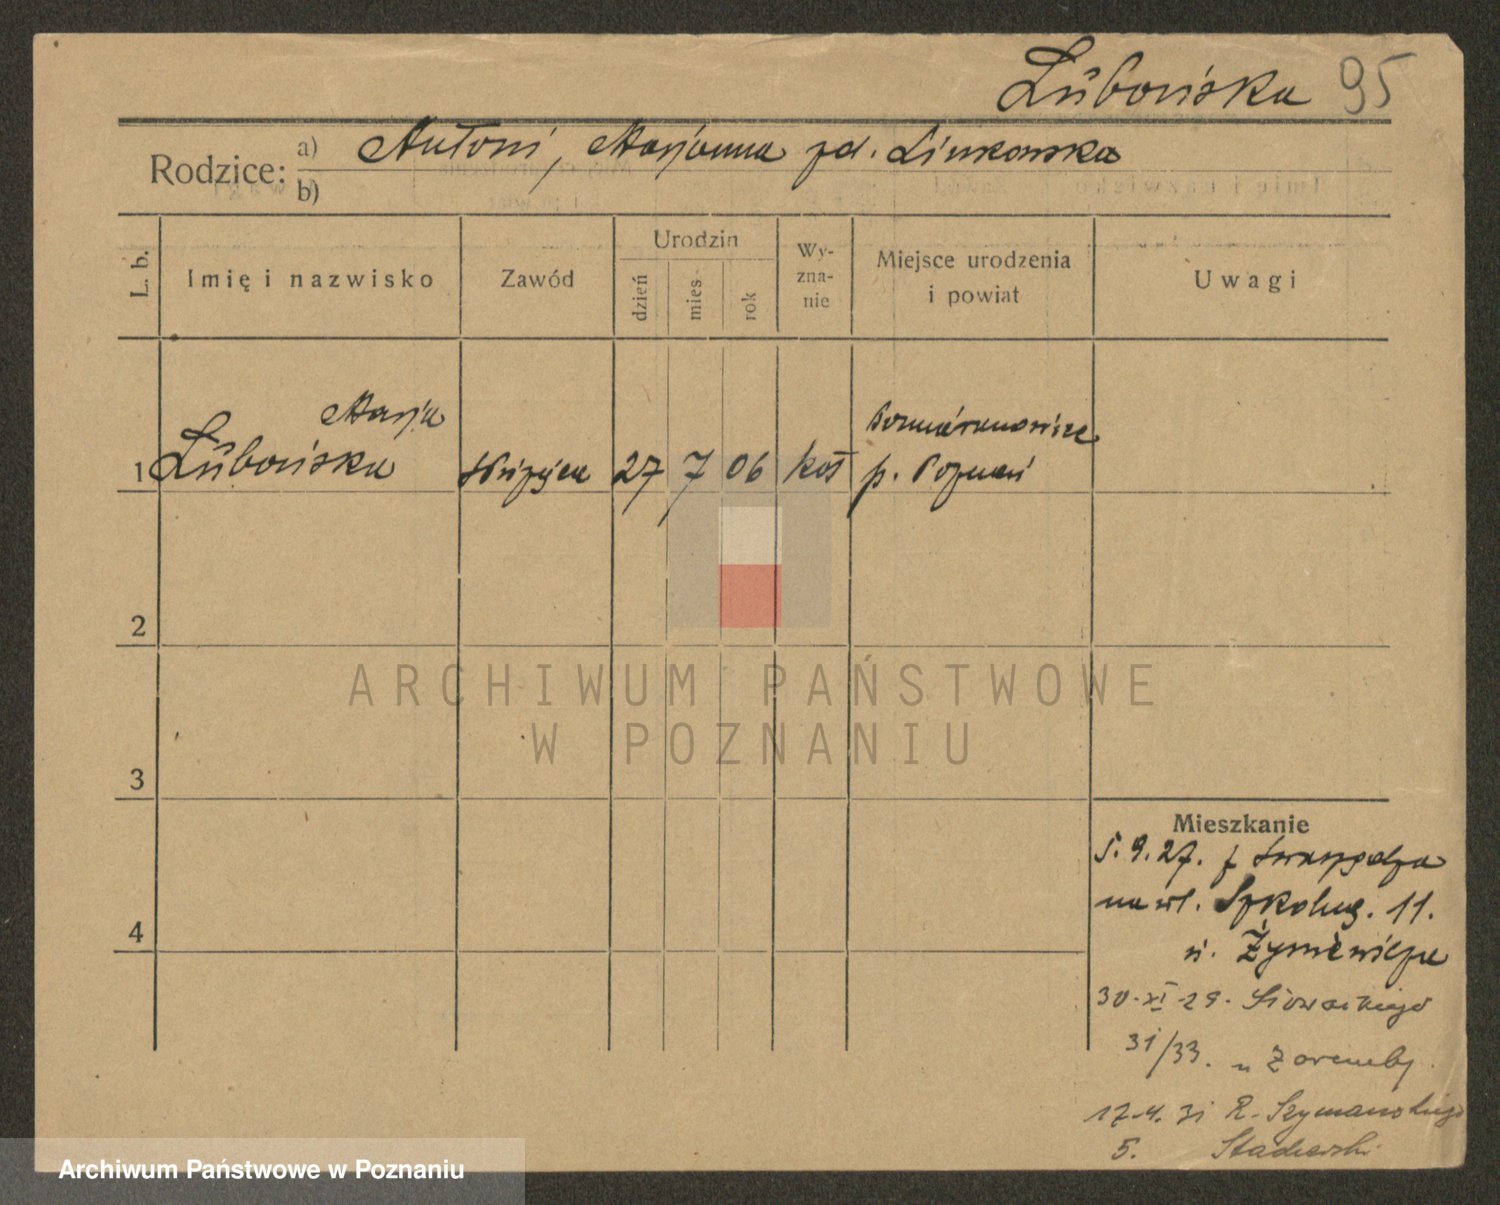 Lubońska 95
Rodzice: a) Antoni, Marjanna zd. Linkowska
b)
L. b.
Imię i nazwisko
Zawód
Urodzin
dzień
mies.
rok
Wy-
zna-
nie
Miejsce urodzenia
i powiat
Uwagi
1 Lubońska Marja
27 7 06 kat
p. Poznań
2
3
4
ARCHIWUM PAŃSTWOWE
W POZNANIU
Mieszkanie
5.9.27. z Swarzędza
na ul. 11.
u.
30-XI-29. Słowackiego
31/33. u Zaremby.
17-4. 31 R. Szymańskiego
5.
Archiwum Państwowe w Poznaniu